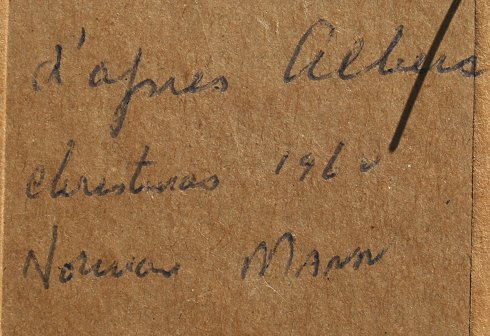 d'après Albers
Christmas 1960
Norman MANN